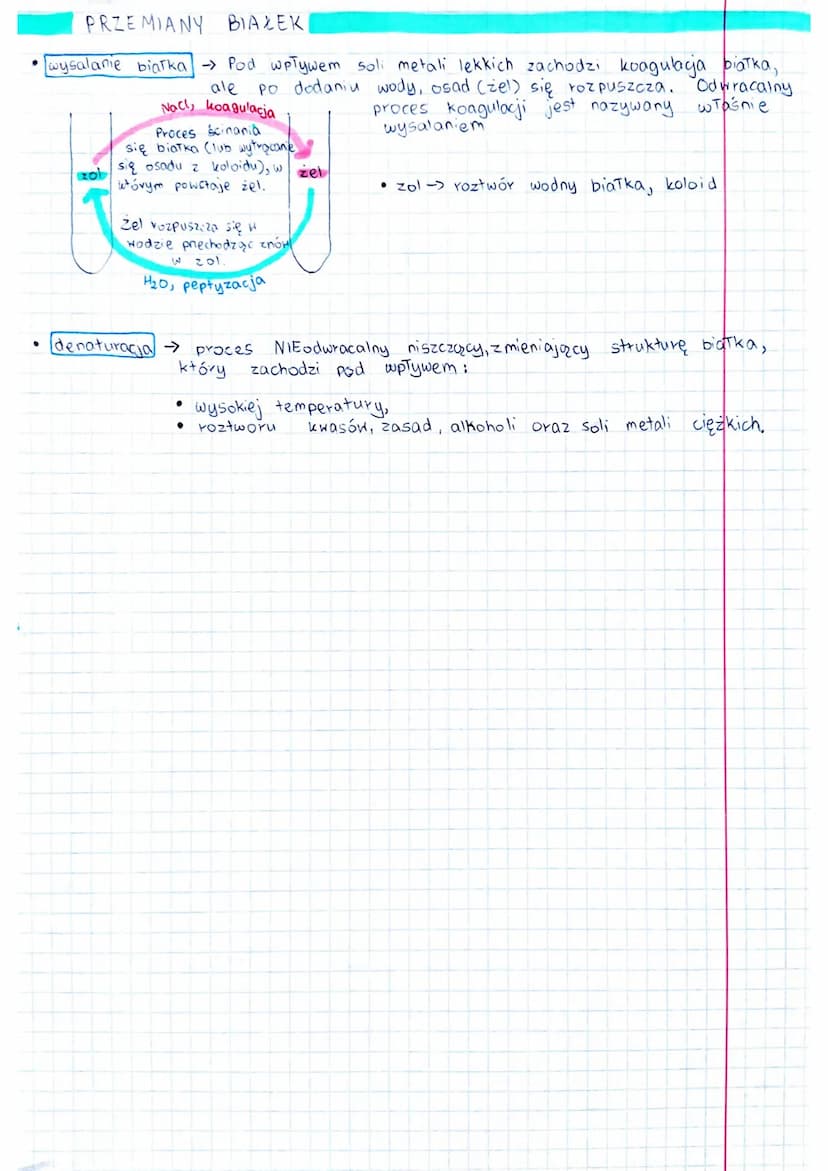 PRZEMIANY BIAŁEK
• wysalanie białka → Pod wpływem soli metali lekkich zachodzi koagulacja białka,
ale po dodaniu wody, osad (żel) się rozpuszcza. Odwracalny
proces koagulacji jest nazywany właśnie
wysalaniem
NaCl, koagulacja
Proces ścinania
się białka (lub wytrącanie
się osadu z koloidu), w
którym powstaje żel.
zol
żel
• zol → roztwór wodny białka, koloid
Żel rozpuszcza się w
wodzie przechodząc znów
w zol.
H2O, peptyzacja
• denaturacja → proces NIEodwracalny niszczący, zmieniający strukturę białka,
który zachodzi pod wpływem:
• wysokiej temperatury,
• roztworu kwasów, zasad, alkoholi oraz soli metali ciężkich.